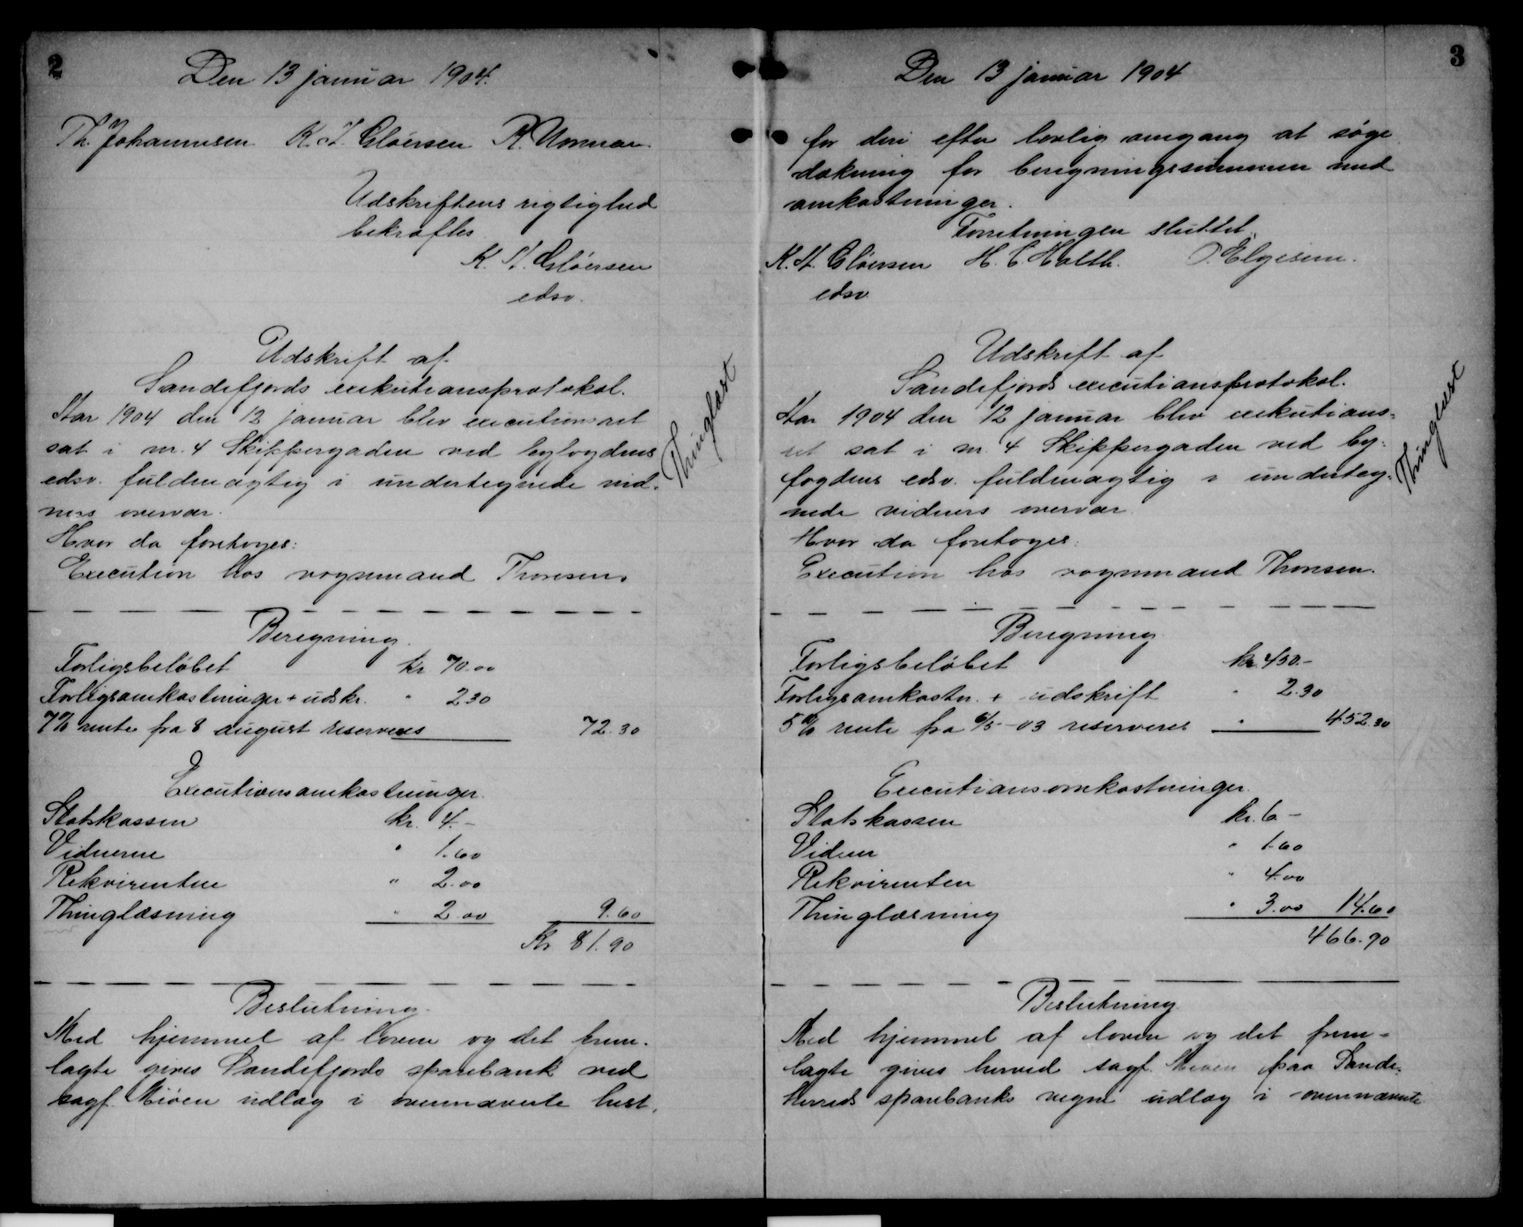 2
Den 13 januar 1904.
Th. Johannesen K. St. Cløersen R. Unman.
Udskriftens rigtighed
bekræftes
K. St. Cløersen
edsv.
Udskrift af
Sandefjords exekutionsprotokol.
Aar 1904 den 12 januar blev executionsret
sat i nr. 4 Skippergaden ved byfogdens
edsv. fuldmægtig i undertegnede vid-
ners overvær.
Hvor da foretoges:
Execution hos vognmand Thorsen.
Thinglæst
Beregning.
Forligsbeløbet kr 70.00
Forligsomkostninger + udskr. " 2.30
7% rente fra 8 august reserveres 72.30
Executionsomkostninger.
Statskassen kr. 4.-
Vidnerne " 1.60
Rekvirenten " 2.00
Thinglæsning " 2.00 9.60
Kr 81.90
Beslutning.
Med hjemmel af loven og det frem-
lagte gives Sandefjords sparebank ved
sagf. Miøen udlæg i ovennævnte hest,
3
Den 13 januar 1904
for deri efter lovlig omgang at søge
dækning for beregningssummen med
omkostninger.
Forretningen sluttet.
K. St. Cløersen H. C. Holth. O. Elgesem.
edsv.
Udskrift af
Sandefjords executionsprotokol.
Aar 1904 den 12 januar blev exekutions-
ret sat i nr. 4 Skippergaden ved by-
fogdens edsv. fuldmægtig i underteg-
nede vidners overvær
Hvor da foretoges:
Execution hos vognmand Thorsen.
Thinglæst
Beregning
Forligsbeløbet kr. 450.-
Forligsomkostn. + udskrift " 2.30
5% rente fra 6/5-03 reserveres " 452.30
Executionsomkostninger
Statskassen kr. 6 -
Vidner " 1.60
Rekvirenten " 4.00
Thinglæsning " 3.00 14.60
466.90
Beslutning
Med hjemmel af loven og det frem-
lagte gives herved sagf. Miøen paa Sande-
herreds sparebanks vegne udlæg i ovennævnte